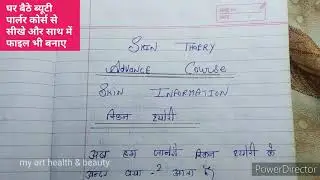 घर बैठे ब्यूटी
पार्लर कोर्स से
सीखे और साथ में
फाइल भी बनाए
SKIN THEORY
ADVANCE COURSE
SKIN INFORMATION
स्किन थ्योरी
अब हम जानेंगे स्किन थ्योरी के
अन्दर क्या -2 आता है
my art health & beauty
PowerDirector